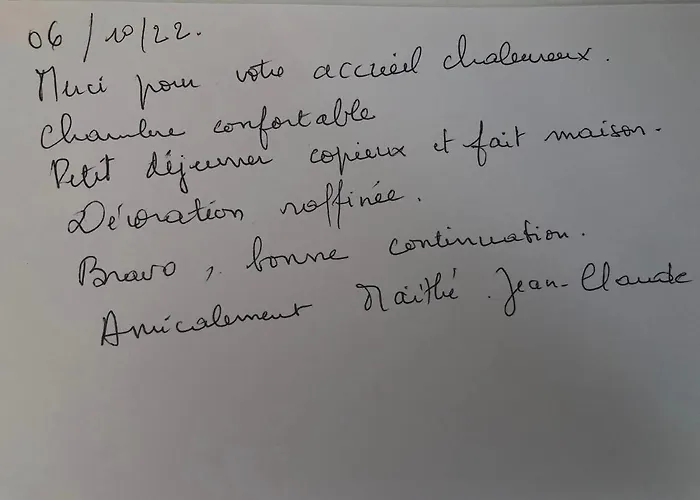 06/10/22.
Merci pour votre accueil chaleureux.
Chambre confortable
Petit déjeuner copieux et fait maison.
Décoration raffinée.
Bravo, bonne continuation.
Amicalement Maïthé. Jean-Claude